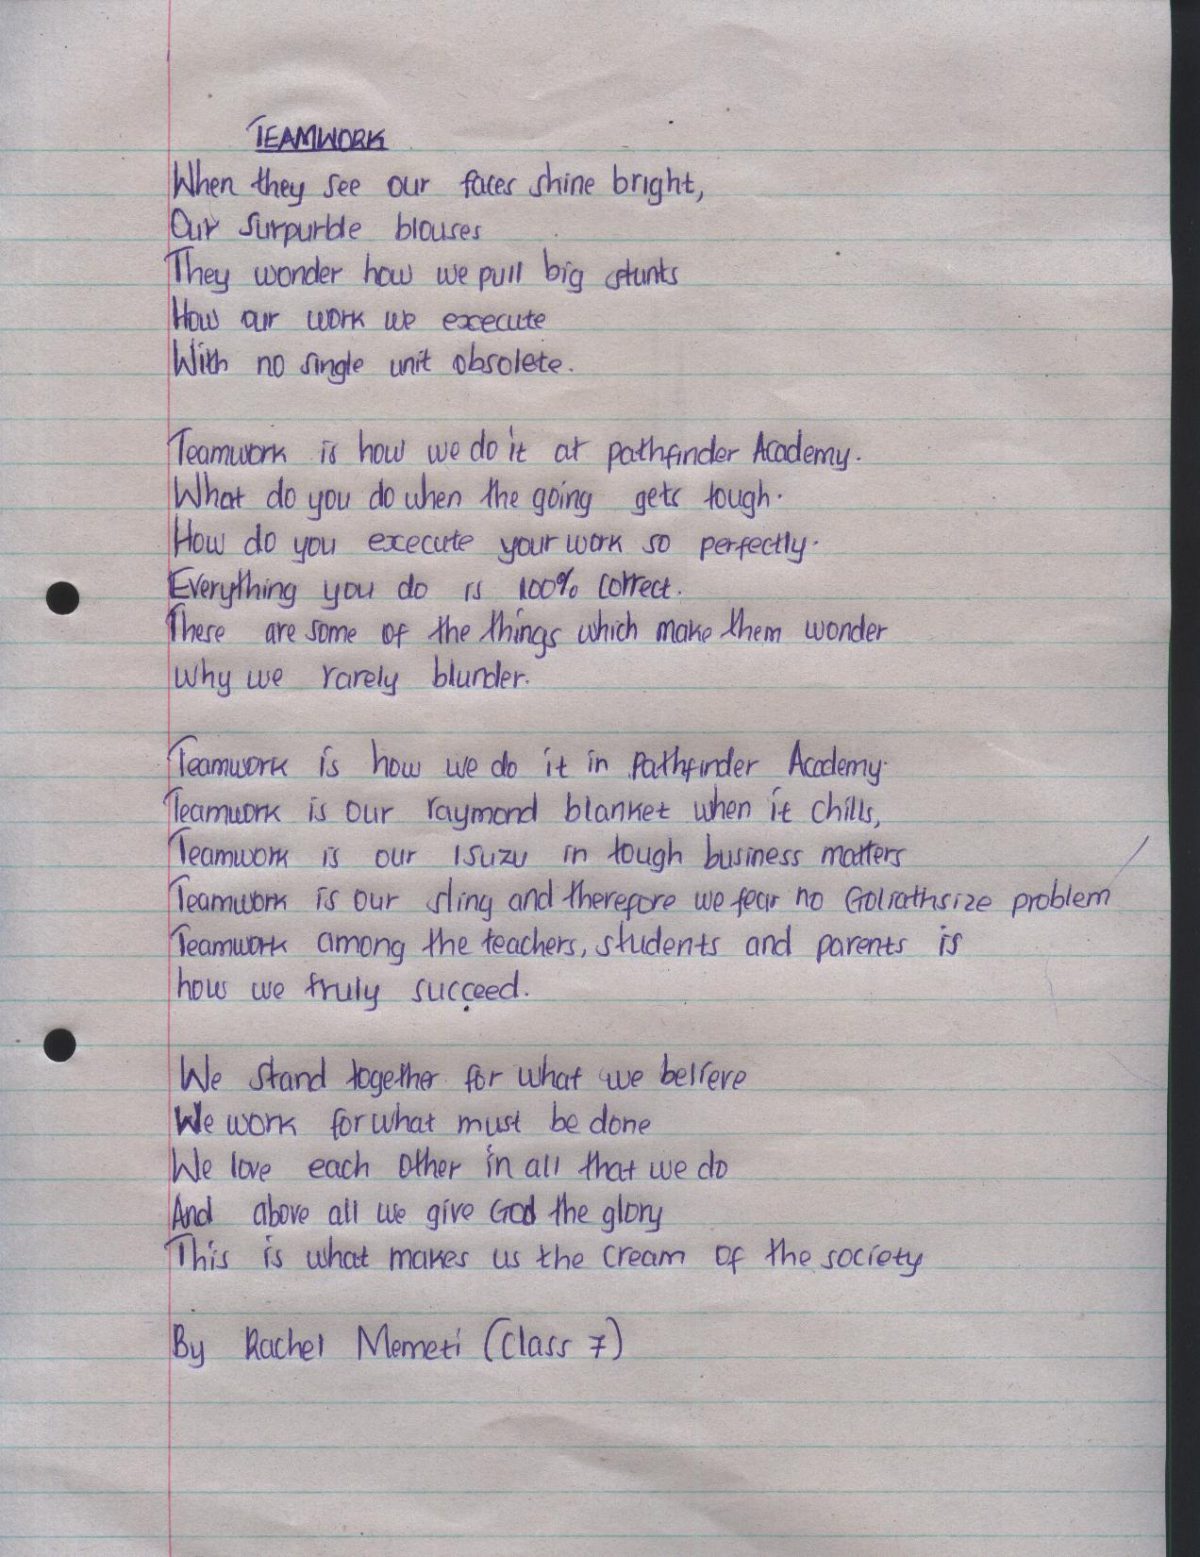 TEAMWORK
When they see our faces shine bright,
Our surpurble blouses
They wonder how we pull big stunts
How our work we execute
With no single unit obsolete.
Teamwork is how we do it at pathfinder Academy.
What do you do when the going gets tough.
How do you execute your work so perfectly.
Everything you do is 100% correct.
These are some of the things which make them wonder
why we rarely blunder.
Teamwork is how we do it in Pathfinder Academy.
Teamwork is our raymond blanket when it chills,
Teamwork is our Isuzu in tough business matters
Teamwork is our sling and therefore we fear no Goliathsize problem
Teamwork among the teachers, students and parents is
how we truly succeed.
We stand together for what we believe
We work for what must be done
We love each other in all that we do
And above all we give God the glory
This is what makes us the cream of the society
By Rachel Memeti (Class 7)